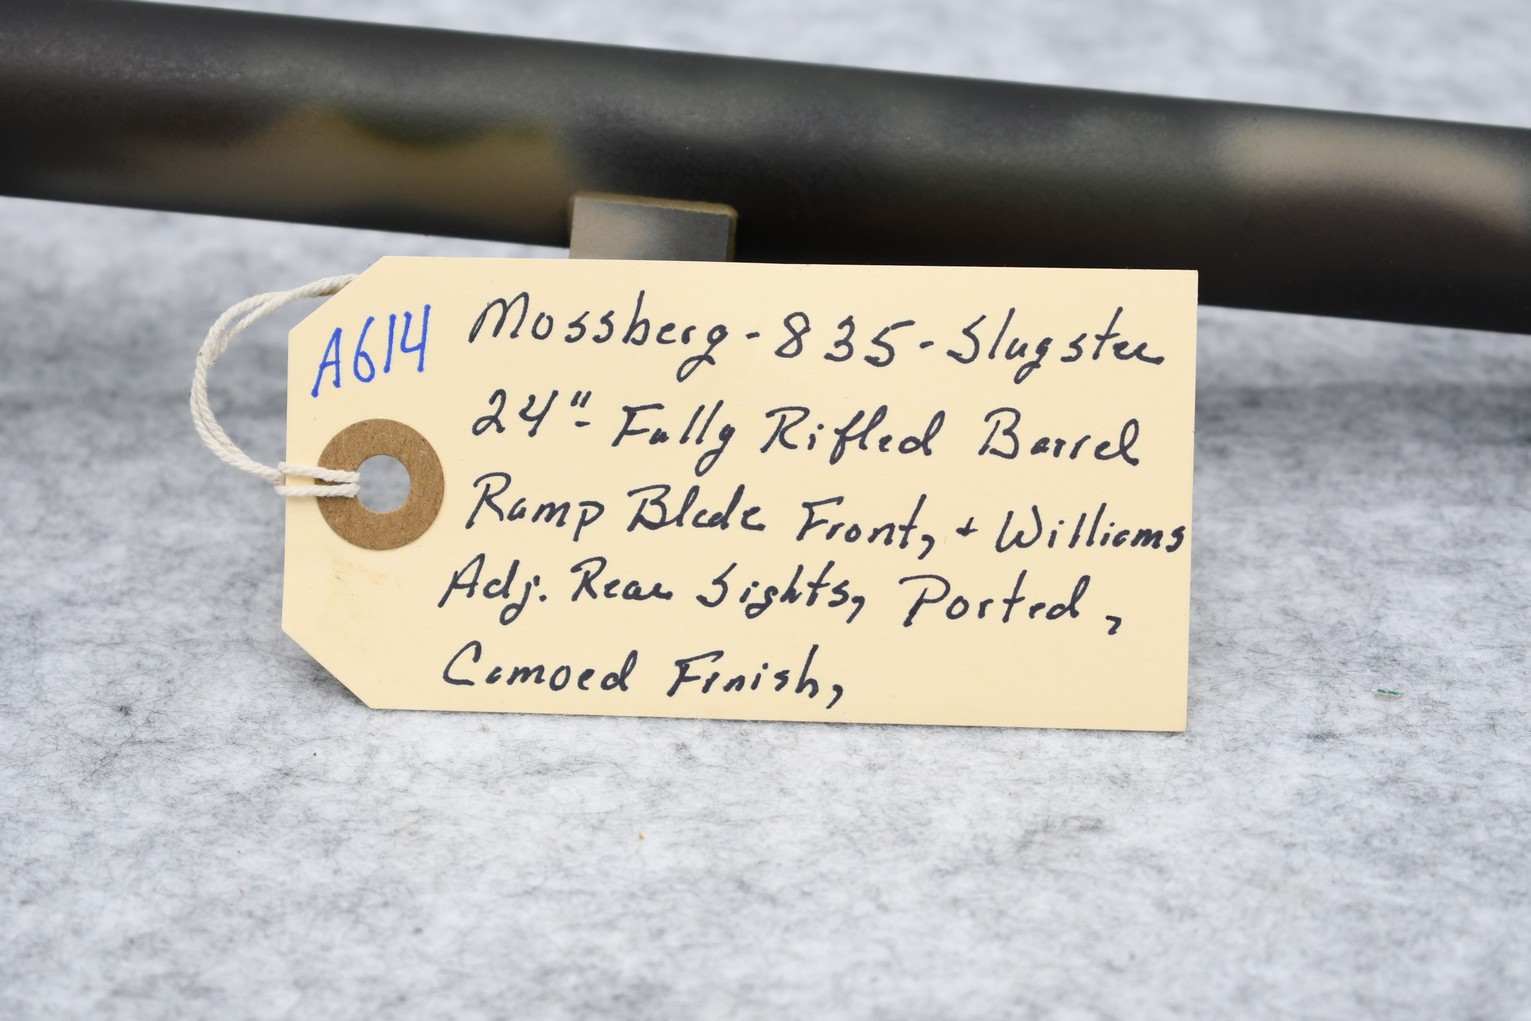 A614
Mossberg - 835 - Slugster
24" - Fully Rifled Barrel
Ramp Blade Front, + Williams
Adj. Rear Sights, Ported,
Camoed Finish,